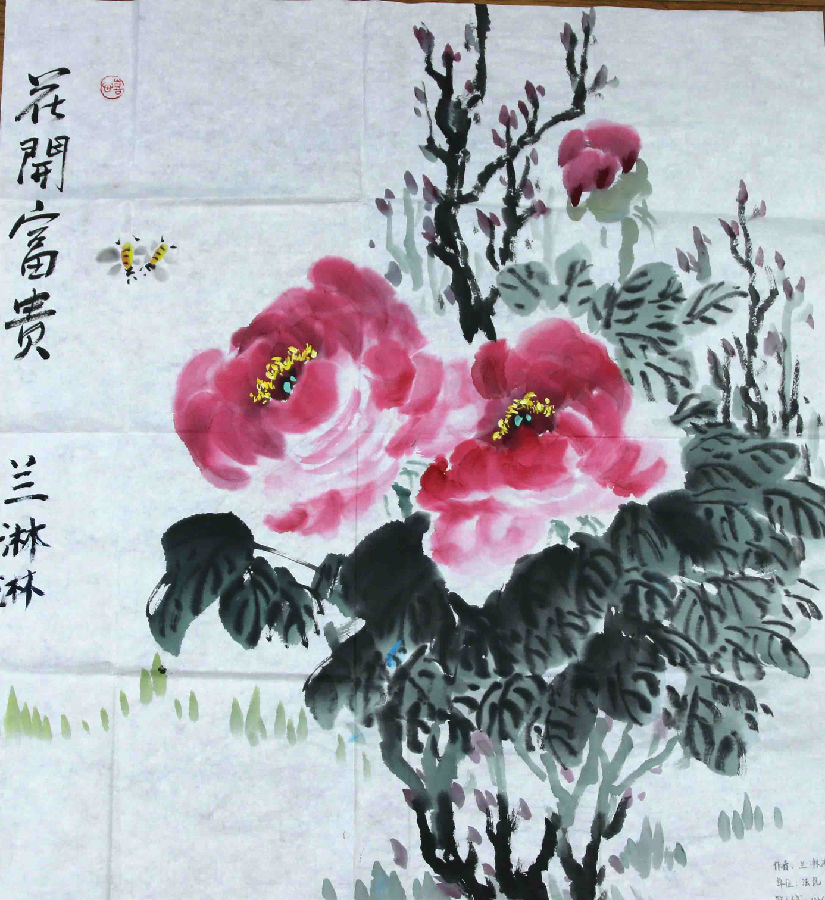 花開富贵
兰淋淋
作者：兰淋
单位：法民